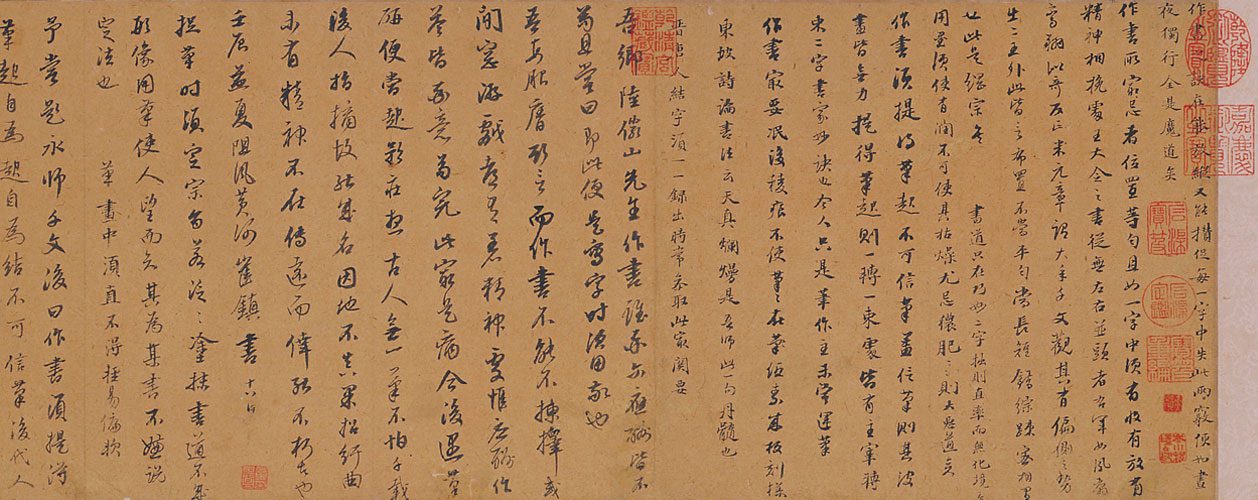 作書之訣在能放縱又能攢捉每一字中失此兩竅便如晝
夜獨行全是魔道矣
作書所最忌者位置等勻且如一字中須有收有放有
精神相挽處王大令之書從無左右並頭者右軍如鳳翥
鸞翔似奇反正米元章謂大年千文觀其有偏側之勢
出二王外此皆言布置不當平勻當長短錯綜疎密相間
也此是 書道只在巧妙二字拙則直率而無化境矣
用墨須使有潤不可使其枯燥尤忌穠肥肥則大惡道矣
作書須提得筆起不可信筆蓋信筆則其波
畫皆無力提得筆起則一轉一束處皆有主宰轉
束二字書家妙訣也今人只是筆作主未嘗運筆
作書最要泯沒稜痕不使筆筆在紙素成板刻樣
東坡詩論書法云天真爛熳是吾師此一句丹髓也
晉唐人結字須一一錄出時常參取此最關要
吾鄉陸儼山先生作書雖率爾應酬皆不
苟且嘗曰即此便是寫字時須用敬也
吾每服膺斯言而作書不能不揀擇或
閒窗游戲都有着精神處惟應酬作
答皆率意苟完此最是病今後遇筆
研便當起矜莊想古人無一筆不怕千載
後人指摘故能成名因地不真果招紆曲
未有精神不在傳遠而倖能不朽者也
壬辰孟夏阻風黃河崔鎮書 十六日
捉筆時須定宗旨若泛泛塗抹書道不成
形像用筆使人望而知其為某書不嫌說
定法也 筆畫中須直不得輕易偏軟
予嘗題永師千文後曰作書須提得
筆起自為起自為結不可信筆後代人